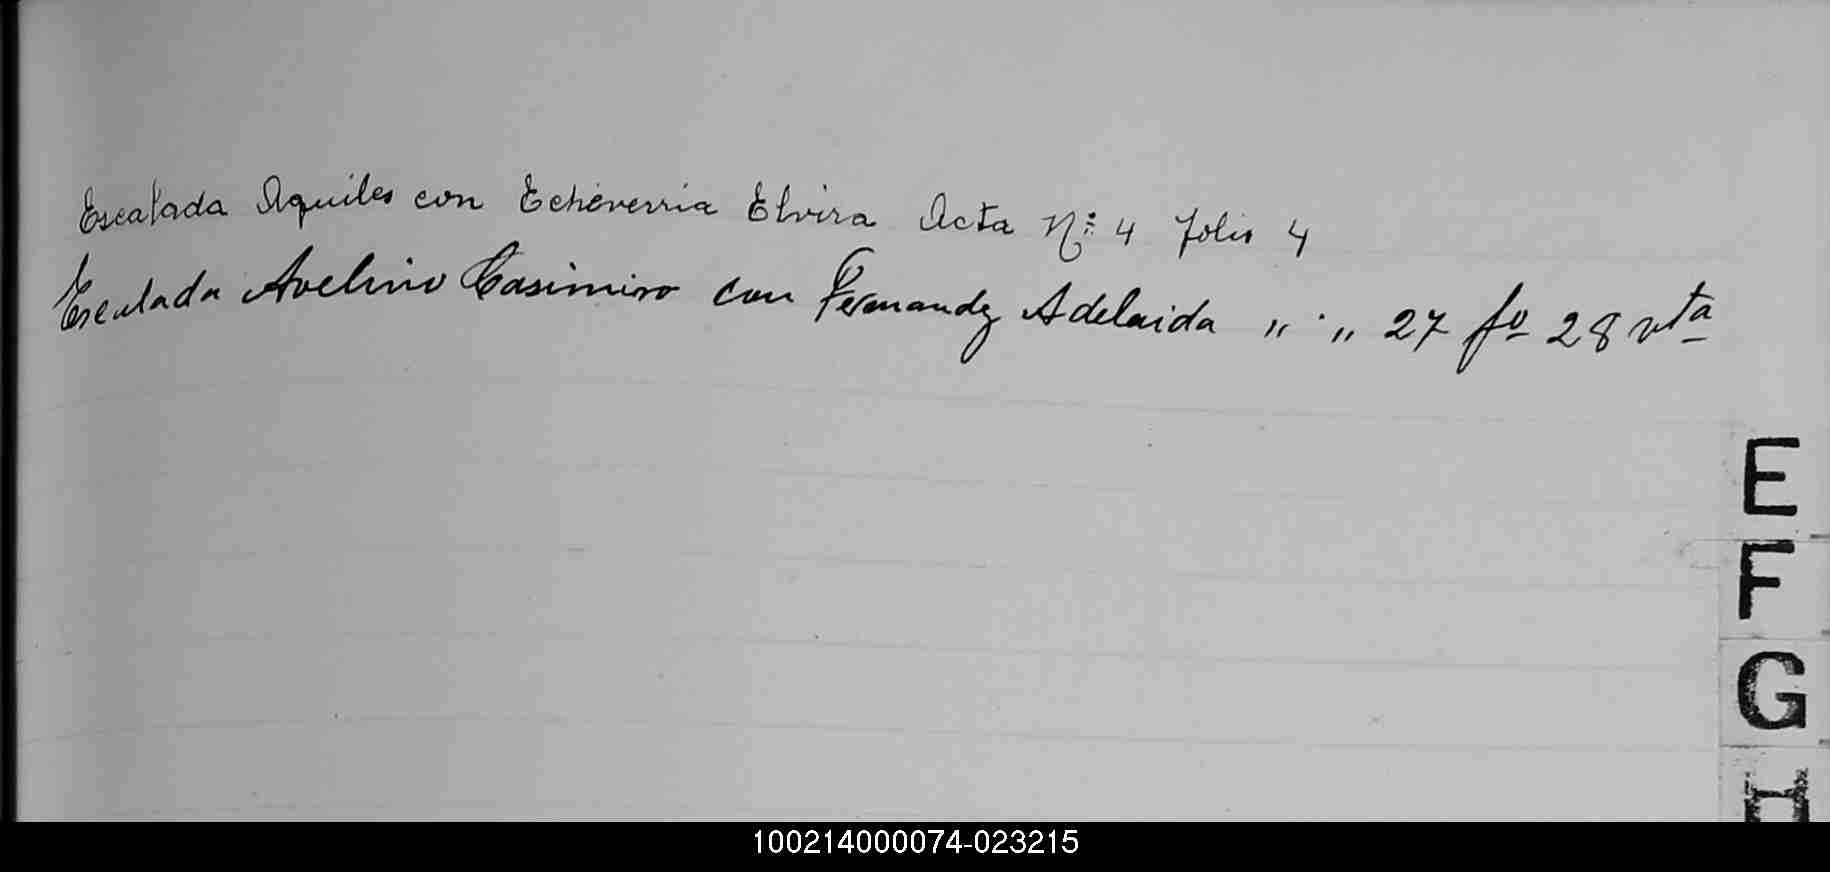 Escalada Aquiles con Echeverria Elvira Acta Nº 4 Folio 4
Escalada Avelino Casimiro con Fernandz Adelaida " " 27 fº 28 vta
E
F
G
H
100214000074-023215